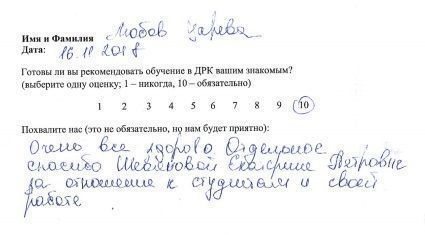 Имя и Фамилия Любовь Царева
Дата: 16.11 2018
Готовы ли вы рекомендовать обучение в ДРК вашим знакомым?
(выберите одну оценку; 1 – никогда, 10 – обязательно)
1 2 3 4 5 6 7 8 9 10
Похвалите нас (это не обязательно, но нам будет приятно):
Очень все здорово Отдельное
спасибо Екатерине Петровне
за отношение к студентам и своей
работе